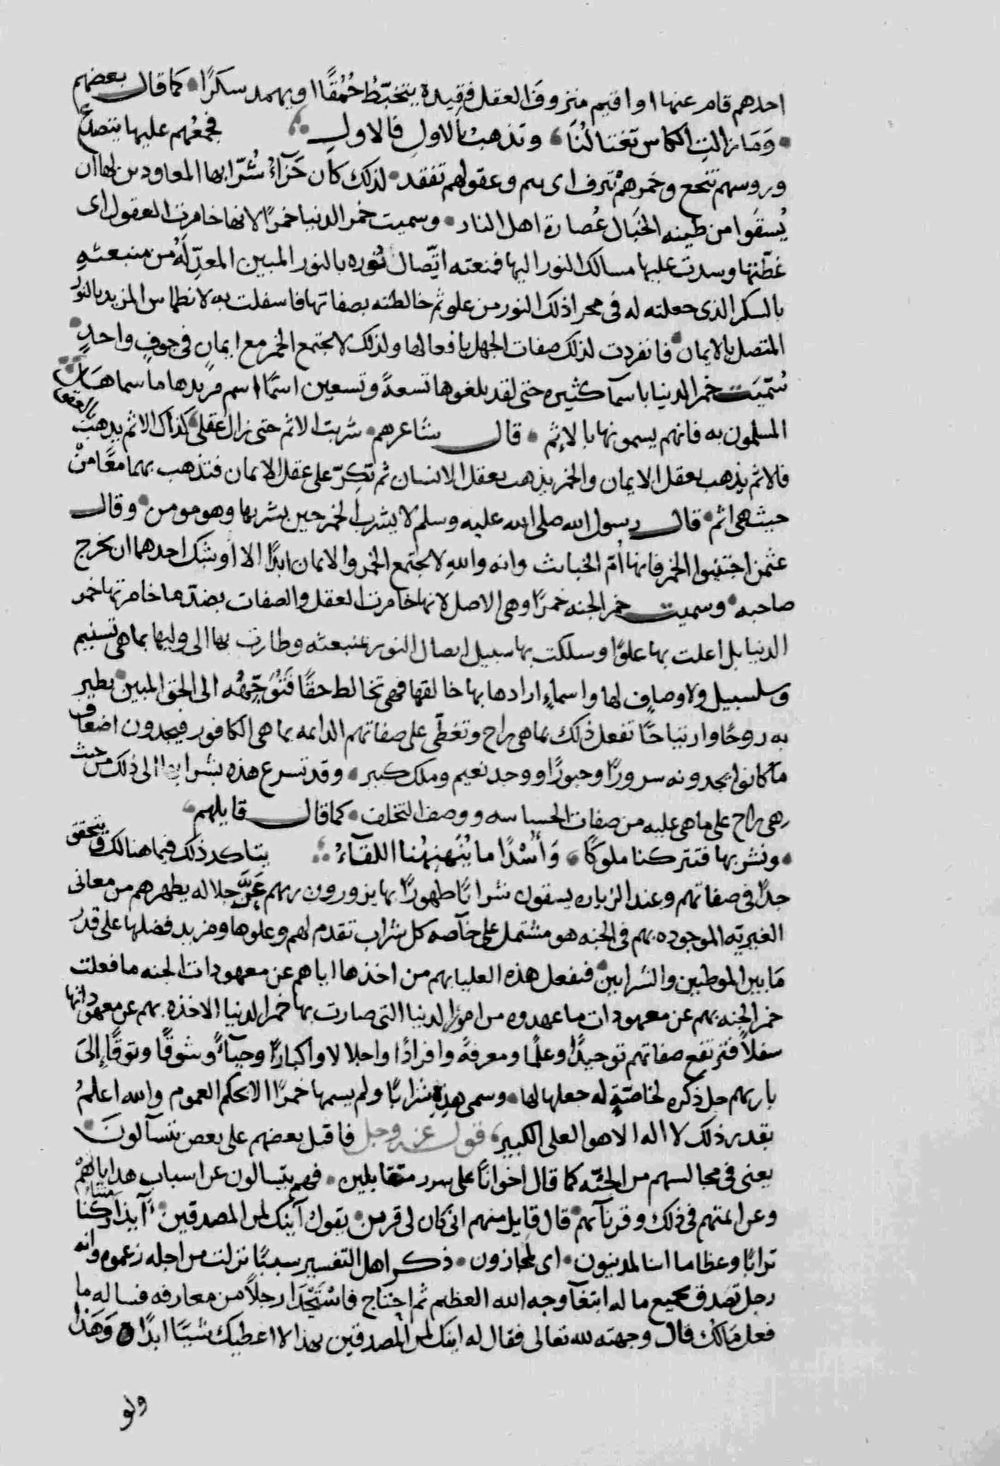 احدهم قام عنها او اقيم منزوف العقل فقيده يتخبط حمقا او يهمد سكرًا • كما قال بعضهم
• وَمَا زالت الكاس تغتالنا، وتذهب بالاول فالاول ∴ فجمعهم عليها يتصدع
وروسهم تتجع وخمرهم تنزف اى بهم وعقولهم تفقد • لذلك كان جَزَآءُ شُرّابها المعاودين لها ان
يُسقَوا من طينه الخَبال عُصارة اهل النار • وسميت خمر الدنيا خمرًا لانها خامرت العقول اى
غطّتها وسدت عليها مسالك النور اليها فمنعته اتّصال نُوره بالنور المبين المعدّ له من منبعثه
بالسكر الذى جعلته له فى مجرا ذلك النور من علو ثم خالطته بصفاتها فاسفلت به لانطماس المزيد بالنور
المتصل بالايمان • فانفردت لذلك صفات الجهل بافعالها ولذلك لا تجتمع الخمر مع ايمان فى جوف واحد •
سُمّيَت خمر الدنيا باسمآ كثيره حتى لقد بلغوها تسعةً وتسعين اسمًا اسم فريدها ما سماها
المسلمون به فانهم يسمونها بالاثم • قال شاعرهم • شربت الاثم حتى زال عقلى كذاك الاثم يذهب بالعقول
فالاثم يذهب بعقل الايمان والخمر يذهب بعقل الانسان ثم تكرّ على عقل الايمان فتذهب بهما معًا مِنْ
حيث هى اثم • قال رسول الله صلى الله عليه وسلم لا يشرب الخمر حين يشربها وهو مومن • وقال
عثمن اجتنبوا الخمر فانها أمّ الخبائث وانه والله لا تجتمع الخمر والايمان ابدًا الا اوشك احدهما ان يخرج
صاحبه • وسميت خمر الجنه خمرًا وهى الاصل لانها خامرت العقل والصفات بضدّ ما خامرتها خمر
الدنيا بل اعلت بها علوًا وسلكت بها سبيل اتصال النور بمنبعثه وطارت بها الى وليها بما هى تسنيم
وسلسبيل ولاوصاف لها واسماء ارادها بها خالقها فهى تخالط حقًا فَتُوَجّهُه الى الحق المبين يطير
به روحًا وارتياحًا تفعل ذلك بما هى راح وتغطّى على صفاتهم الدايمه بما هى الكافور فيجدون اضعاف
ما كانوا يجدونه سرورًا وحبورًا ووجد نعيم وملك كبير • وقد تسرع هذه بشرابها الى ذلك من حيث
هى راح على ما هى عليه من صفات الخساسه ووصف التخلف • كما قال قايلهم،
• ونشربها فتتركنا ملوكًا، وَأُسْدًا ما يُنَهنِهُنا اللقآءُ ∴ يتاكد ذلك فيما هنالك ويتحقق
جدًا فى صفاتهم وعند الزياره يسقون شرابًا طهورًا بها يزورون ربهم عَزَّ جلاله يطهرهم من معانى
الغيريّه الموجوده بهم فى الجنه هو مشتمل على خآصه كل شراب تقدم لهم وعلوها ومزيد فضلها على قدر
مَا بين الموطنين والشرابين فتفعل هذه العليا بهم من اخذها اياهم عن معهودات الجنه ما فعلت
خمر الجنه بهم عن معهودات ما عهدوه من امور الدنيا التى صارت بها خمر الدنيا الاخذه بهم عن معهوداتها
سفلاً فترتفع صفاتهم توحيدًا وعلمًا ومعرفةً وافرادًا واجلالا واكبارًا وحبآءً وشوقًا وتوقًا إلى
باريهم جل ذكره لخاصّيّةٍ له جعلها لها • وسمى هذه شرابًا ولم يسمها خمرًا الا لحكم العموم والله اعلمُ
بقدر ذلك لا اله الا هو العلى الكبير، قوله عز وجل فاقبل بعضهم على بعض يتسآلونَ
يعنى فى مجالسهم من الجنّه كما قال اخوانًا على سرر متقابلين • فهم يتسالون عن اسباب هداياهُمْ
وعن ايمتهم فى ذلك وقرنآيهم • قال قايل منهم انى كان لى قرين • يقول آينك لمن المصدقين • آيذا متنا وكنا
ترابًا وعظاما اينا لمدينون • اى لمجازون • ذكر اهل التفسير سببًا نزلت من اجله زعموه وانه
رجل تصدق بجميع ماله ابتغآ وجه الله العظيم ثم احتاج فاسْتَجْدَا رجلاً من معارفه فساله ما
فعل مَالك قال وجهته لله تعالى فقال له اينك لمن المصدقين بهذا لا اعطيك شيًا ابدًا • وَهَذا
ولو